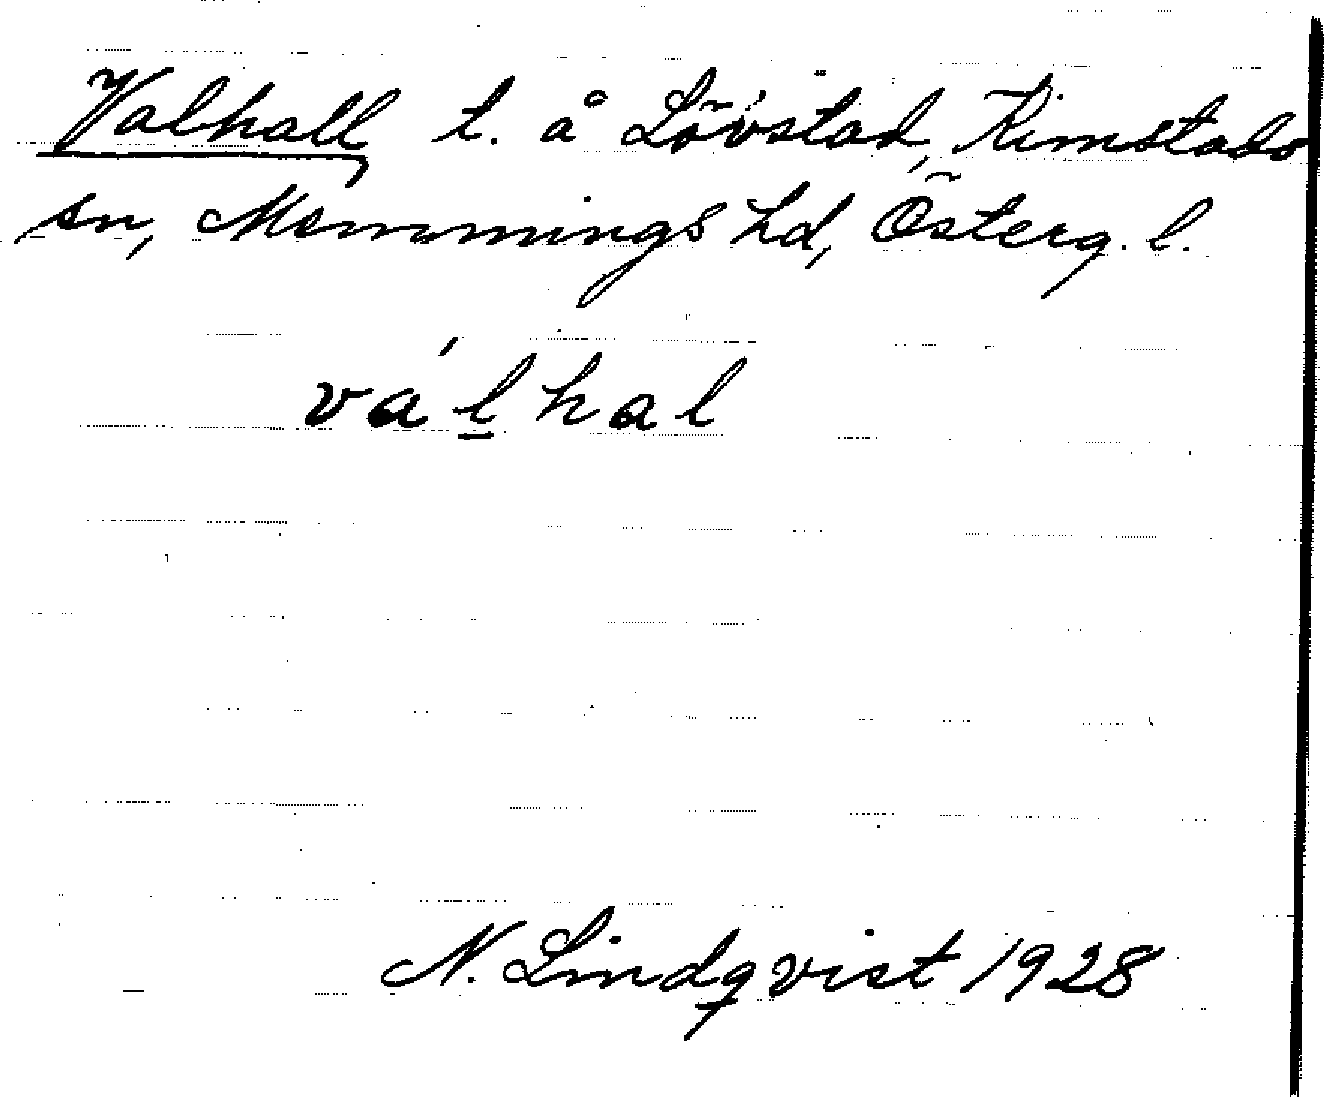 Valhall, t. å Lövstad, Kimstads
sn, Memmings hd, Österg. l.
va´l̲hal
N. Lindqvist 1928